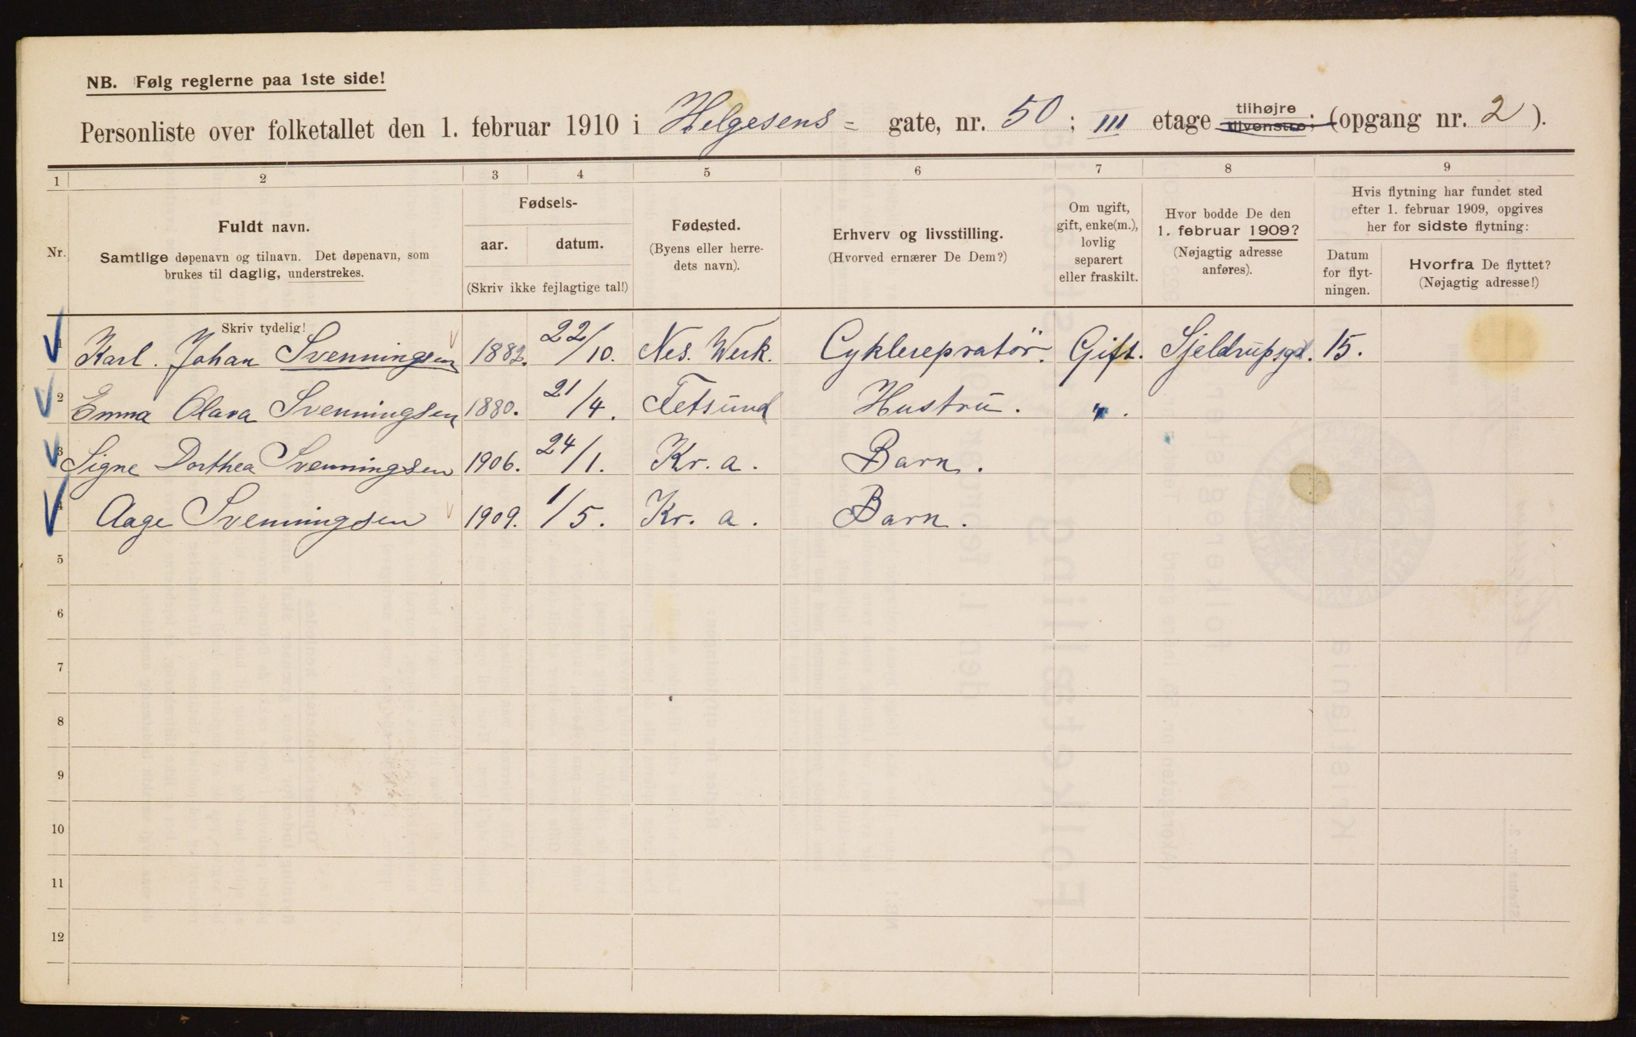 NB. Følg reglerne paa 1ste side!
Personliste over folketallet den 1. februar 1910 i Helgesens = gate, nr. 50 ; III etage tilhøjre tilvenstre; (opgang nr. 2 ).
1 2 3 4 5 6 7 8 9
Nr.
Fuldt navn.
Samtlige døpenavn og tilnavn. Det døpenavn, som
brukes til daglig, understrekes.
Fødsels-
aar. datum.
(Skriv ikke fejlagtige tal!)
Fødested.
(Byens eller herre-
dets navn).
Erhverv og livsstilling.
(Hvorved ernærer De Dem?)
Om ugift,
gift, enke(m.),
lovlig
separert
eller fraskilt.
Hvor bodde De den
1. februar 1909?
(Nøjagtig adresse
anføres).
Hvis flytning har fundet sted
efter 1. februar 1909, opgives
her for sidste flytning:
Datum
for flyt-
ningen.
Hvorfra De flyttet?
(Nøjagtig adresse!)
Skriv tydelig!
1 Karl. Johan Svenningsen 1882. 22/10. Nes. Werk. Cyklerepratör. Gift. Sjeldrupsgd. 15.
2 Emma Olava Svenningsen 1880. 21/4. Fetsund Hustru. ". 
3 Signe Dorthea Svenningsen 1906. 24/1. Kr. a. Barn.
4 Aage Svenningsen 1909. 1/5. Kr. a. Barn.
5
6
7
8
9
10
11
12